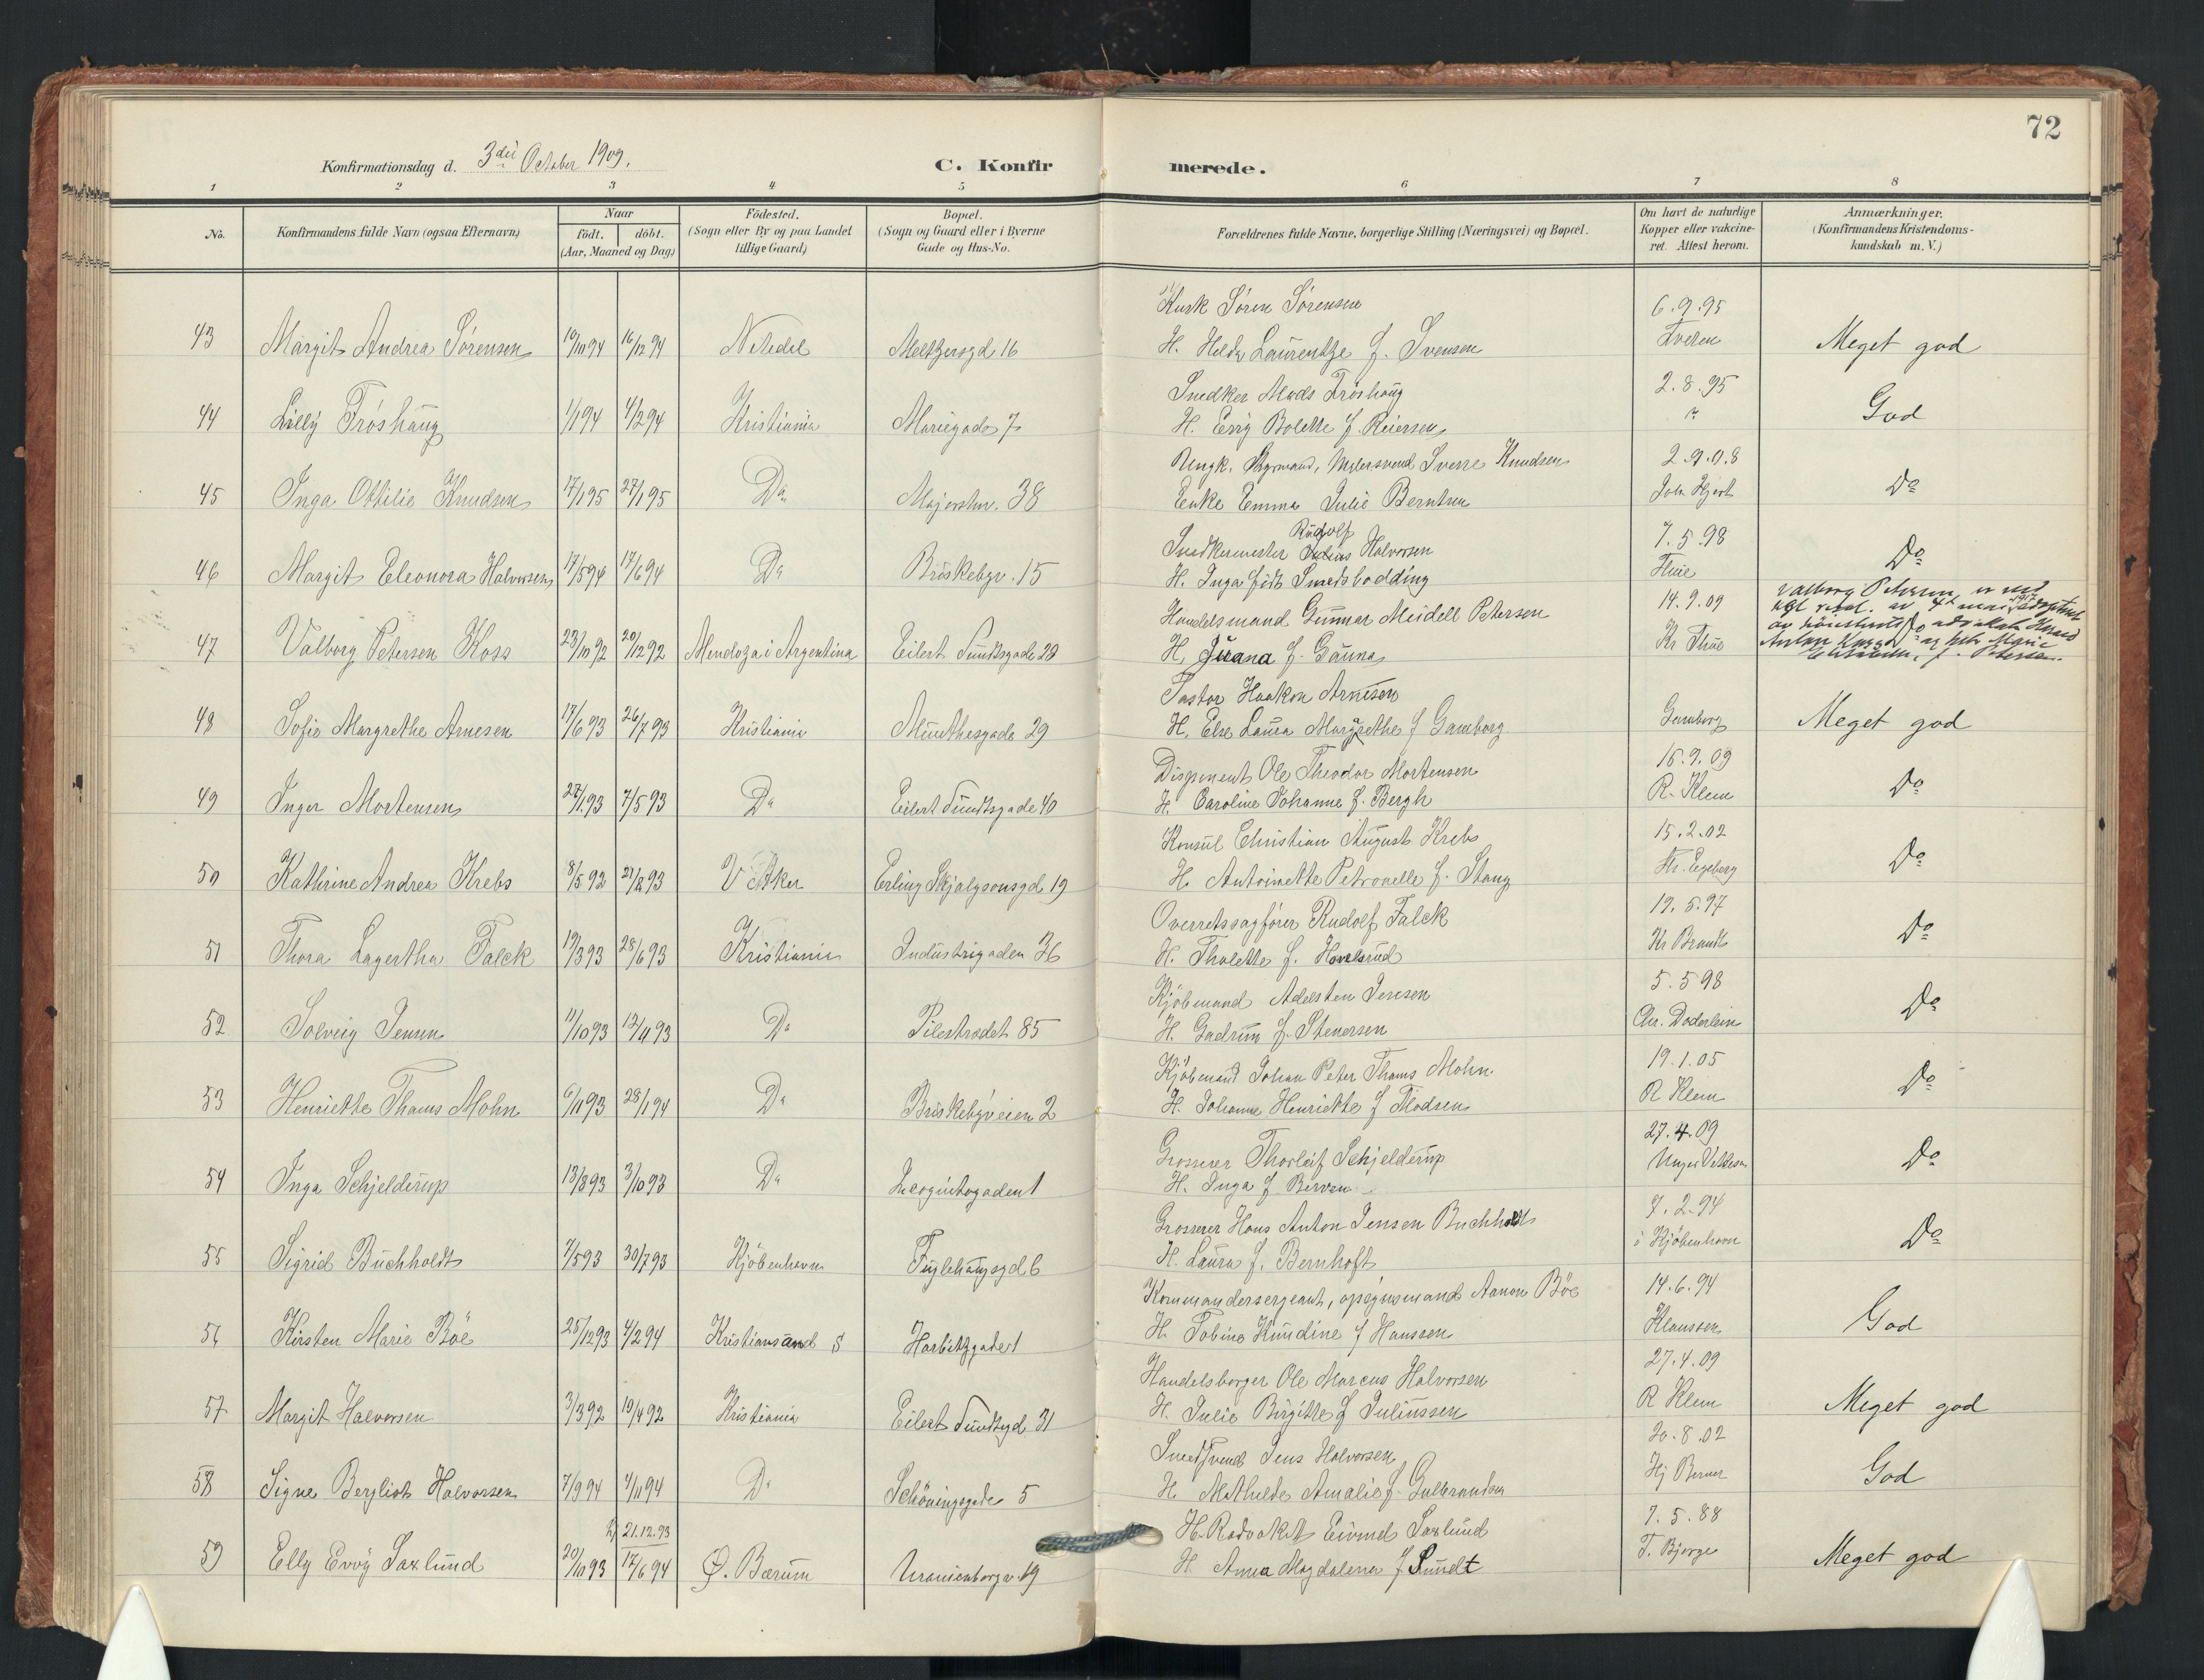 72
Konfirmationsdag d. 3die October 1909.
C. Konfirmerede.
1 2 3 4 5 6 7 8
No.
Konfirmandens fulde Navn (ogsaa Efternavn)
Naar
födt. döbt.
(Aar, Maaned og Dag)
Födested.
(Sogn eller By og paa Landet
tillige Gaard)
Bopæl.
(Sogn og Gaard eller i Byerne
Gade og Hus-No.
Forældrenes fulde Navne, borgerlige Stilling (Næringsvei) og Bopæl.
Om havt de naturlige
Kopper eller vakcine-
ret. Attest herom.
Anmærkninger.
(Konfirmandens Kristendoms-
kundskab m. V.)
Kusk Sören Sörensen 6.9.95
43 Margit Andrea Sörensen 19/10 94 16/12 94 Nitedal Meltzersgd 16 H. Helda Laurentze f. Svensen Meget god
Snedker Mads Fröshaug 2.8.95
44 Lilly Fröshaug 1/1 94 4/2 94 Kristiania Mariegade 7 H. Evig Bolette f. Reiersen God
Ungk. Styrmand, Sverre Knudsen 2.9.08
45 Inga Ottilie Knudsen 17/1 95 27/1 95 Do Majorstuv. 38 Enke Emma Julie Berntsen Joh Hjort Do
Snedkermester Rudolf Julius Halvorsen 7.5.98
46 Margit Eleonora Halvorsen 17/5 94 17/6 94 Do Briskebyv. 15 H. Inga födt Smedsbodding Thue Do
Handelsmand Gunnar Meidell Petersen 14.9.09
47 Valborg Petersen Koss 23/10 92 20/12 92 Mendoza i Argentina Eilert Sundtsgade 28 H. Juana f. Gauna Kr Thue
Valborg Petersen er ved
kgl resol. av 4de mai 1917 adopteret
av höiesteretsadvokat Harald
Anton og hustru Marie
Elisabeth, f. Petersen.
Pastor Haakon Arnesen
48 Sofie Margrethe Arnesen 17/6 93 26/7 93 Kristiania Munthesgade 29 H. Else Laura Margrethe f Gamborg Gamborg Meget god
Disponent Ole Theodor Mortensen 16.9.09
49 Inger Mortensen 27/1 93 7/5 93 Do Eilert Sundtsgade 40 H. Caroline Johanne f. Bergh R. Klem Do
Konsul Christian August Krebs 15.2.02
50 Kathrine Andrea Krebs 8/5 92 V Aker Erling Skjalgsonsgd 19 H. Antoinette Petronelle f. Stang Egeberg Do
Overretssagförer Rudolf Falck 19.5.97
51 Thora Lagertha Falck 19/3 93 28/6 93 Kristiania Industrigaden 36 H. Thalette f. Hovelsrud Kr Brandt Do
Kjöbmand Adelsten Jensen 5.5 98
52 Solveig Jensen 11/10 93 13/11 93 Do Pilestrædet 85 H. Gudrun f. Stenersen Chr. Döderlein Do
Kjöbmand Johan Peter Thams Mohn 19.1.05
53 Henriette Thams Mohn 6/11 93 28/1 94 Do Briskebyveien 2 H. Johanne Henriette f Flodsen R Klem Do
Grosserer Thorleif Schjelderup 27.4.09
54 Inga Schjelderup 13/8 93 3/10 93 Do Incognitogaden 1 H. Inga f Berven Unger Vetlesen Do
Grosserer Hans Anton Jensen Buchholdt 7.2.94
55 Sigrid Buchholdt 7/5 93 30/7 93 Kjöbenhavn Fuglehaugsgd 6 H. Laura f. Bernhoft i Kjöbenhavn Do
Kommandersergeant, opsynsmand Aanon Böe 14.6.94
56 Kirsten Marie Böe 25/12 93 4/2 94 Kristiansand S Harbitzgade 1 H. Tobine Knudine f Hanssen Klaussen God
Handelsborger Ole Marcus Halvorsen 27.4.09
57 Margit Halvorsen 3/3 92 10/4 92 Kristiania Eilert Sundtsgd 31 H. Julie Birgitte f Juliussen R Klem Meget god
Smedsvend Jens Halvorsen 20.8.02
58 Signe Bergliot Halvorsen 7/9 94 4/11 94 Do Schöningsgade 5 H. Mathilde Amalie f. Gulbrandsen Hj Berner God
Hj 21.12.93 H.Radvokat Eivind Saxlund 7.5.88
59 Elly Evvy Saxlund 20/10 93 17/6 94 Ø. Bærum Uranienborgv 19 H. Anna Magdalena f Sundt T. Bjerge Meget god